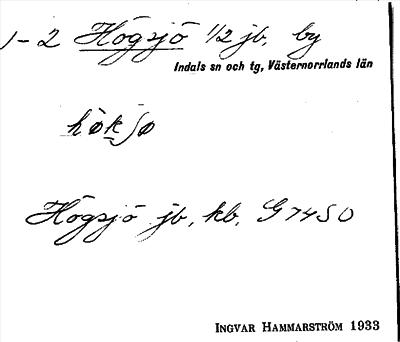 1-2 Högsjö 1/2 jb, by
Indals sn och tg, Västernorrlands län
hø̀k̬ʃø
Högsjö jb, kb, G 7450
INGVAR HAMMARSTRÖM 1933